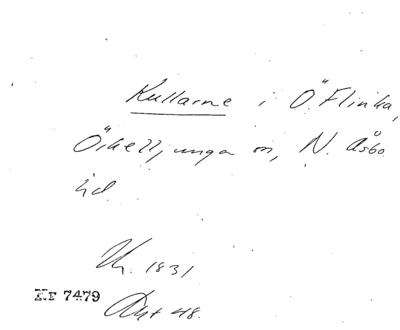 Kullarne i Ö. Flinka,
Örkelljunga sn, N. Åsbo
hd.
1831
Nr 7479
Akt 48.